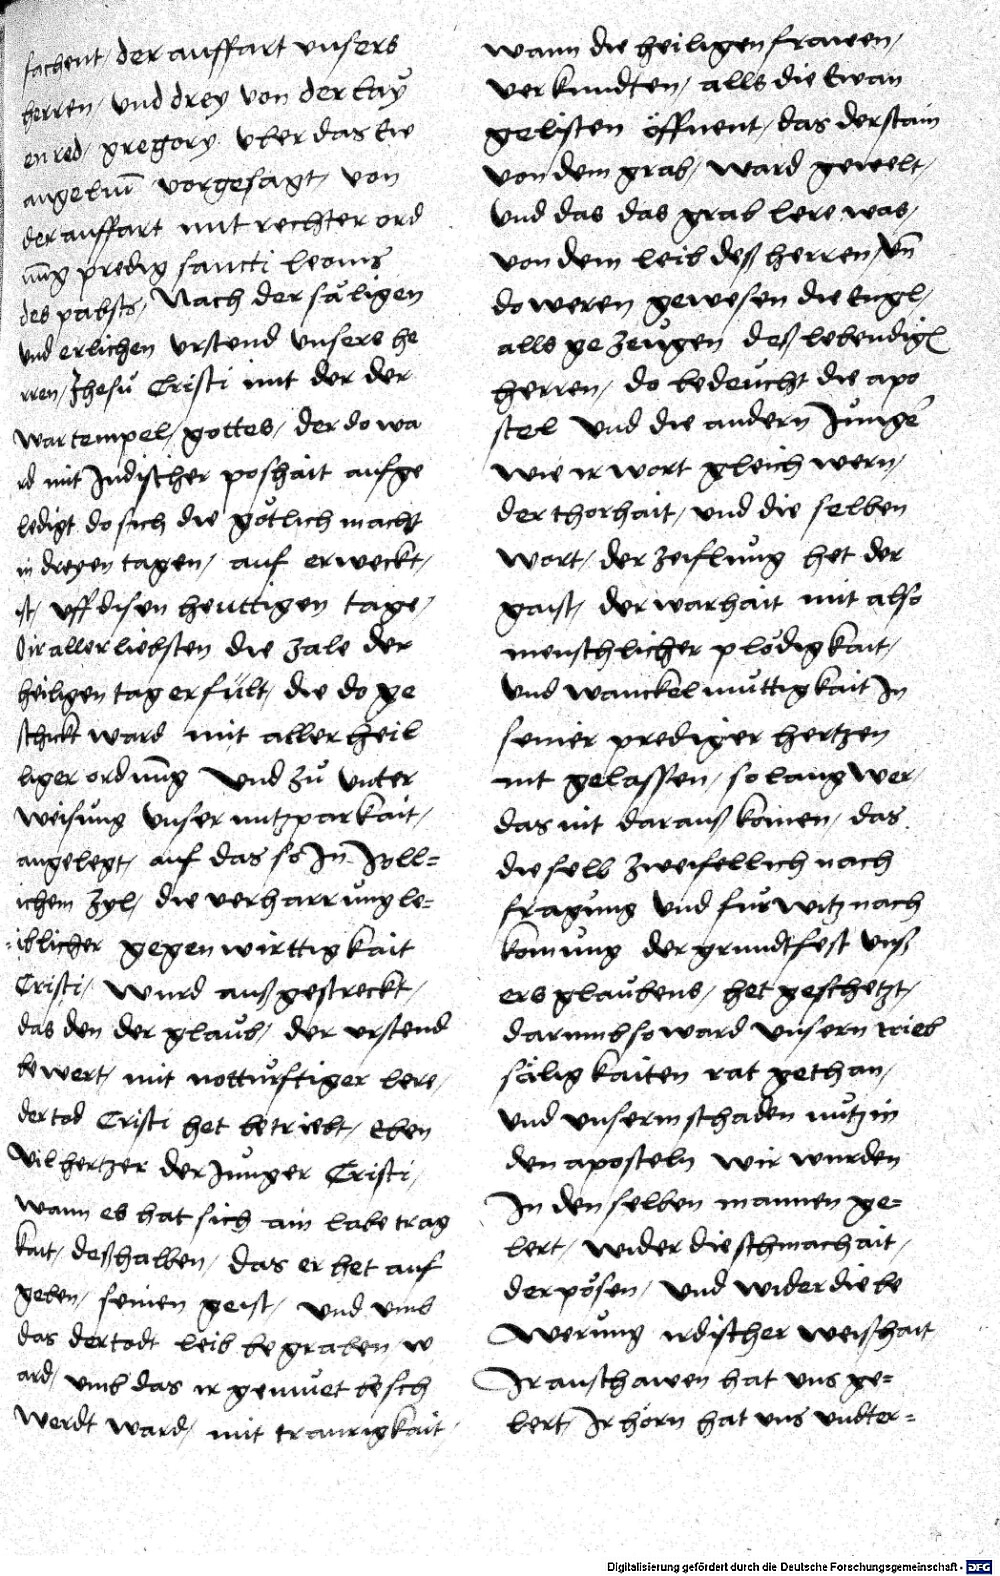 sachent / der auffart vnsers
herren / vnd drey von der lay
en red / gregory vber das Ew
angeliūm vorgesagt / von
der auffart mit rechter ord
nūng predig sancti leonis
des pabsts / Nach der säligen
vnd erlichen vrstend vnsers he
rren / Jhesu Cristi mit der der
war tempel / gottes / der do wa
rd mit Judischer poshait aufge
ledigt do sich die götlich macht
in dreyen tagen / auf erweckt /
ist / vff disen heuttigen tage /
Ir aller liebsten die zale der
heiligen tag erfült / die do ge
schickt ward mit aller heil
liger ordnūng vnd zů vnter
weisung vnser nutzparkait /
angelegt / auf das so In Söll=
ichem zyl / die verharrung le=
iblicher gegenwirttigkait
Cristi / wurd außgestreckt /
das den der glaub / der vrstend
bewert / mit notturftiger lere /
der tod Cristi het betriebt / Eben
vil hertzer der Junger Cristi /
wann es hat sich ain labetrag
kait / deßhalben / das er het auf
geben / seinen geist / vnd vmb
das der todt leib begraben w
ard / vmb das ir gemuet besch
werdt ward / mit traurigkait /
wann die heiligen frawen /
verkundten / alls die Ewan
gelisten öffnent / das der stain
von dem grab / ward gewelt /
vnd das das grab lere was /
von dem leib deß herren / vn̄
do weren gewesen die Engl /
alls gezeugen deß lebendigl
herren / do bedeucht die apo
stel vnd die andern Jungē
wie ir wort gleich wern /
der thorhait / vnd die selben
wort / der zeiflung het der
gaist / der warhait mit also
menschlicher plödigkait /
vnd wanckelmuttigkait In
seiner prediger hertzen
nit gelassen / so lang wer /
das nit darauß komen / das
die selb zweifellich nach
fragung vnd furwitz nach
komung der grundtfest vnß
ers glaubens / het geschetzt /
darumb so ward vnsern trieb
säligkaiten rat gethan /
vnd vnserm schaden nutz in
den aposteln wir wurden
In den selben mannen ge=
lert / wider die schmachait /
der pösen / vnd wider die be
werung irdischer weishait
Ir anschawen hat vns ge=
lert / Ir hörn hat vns vndter=
Digitalisierung gefördert durch die Deutsche Forschungsgemeinschaft - DFG